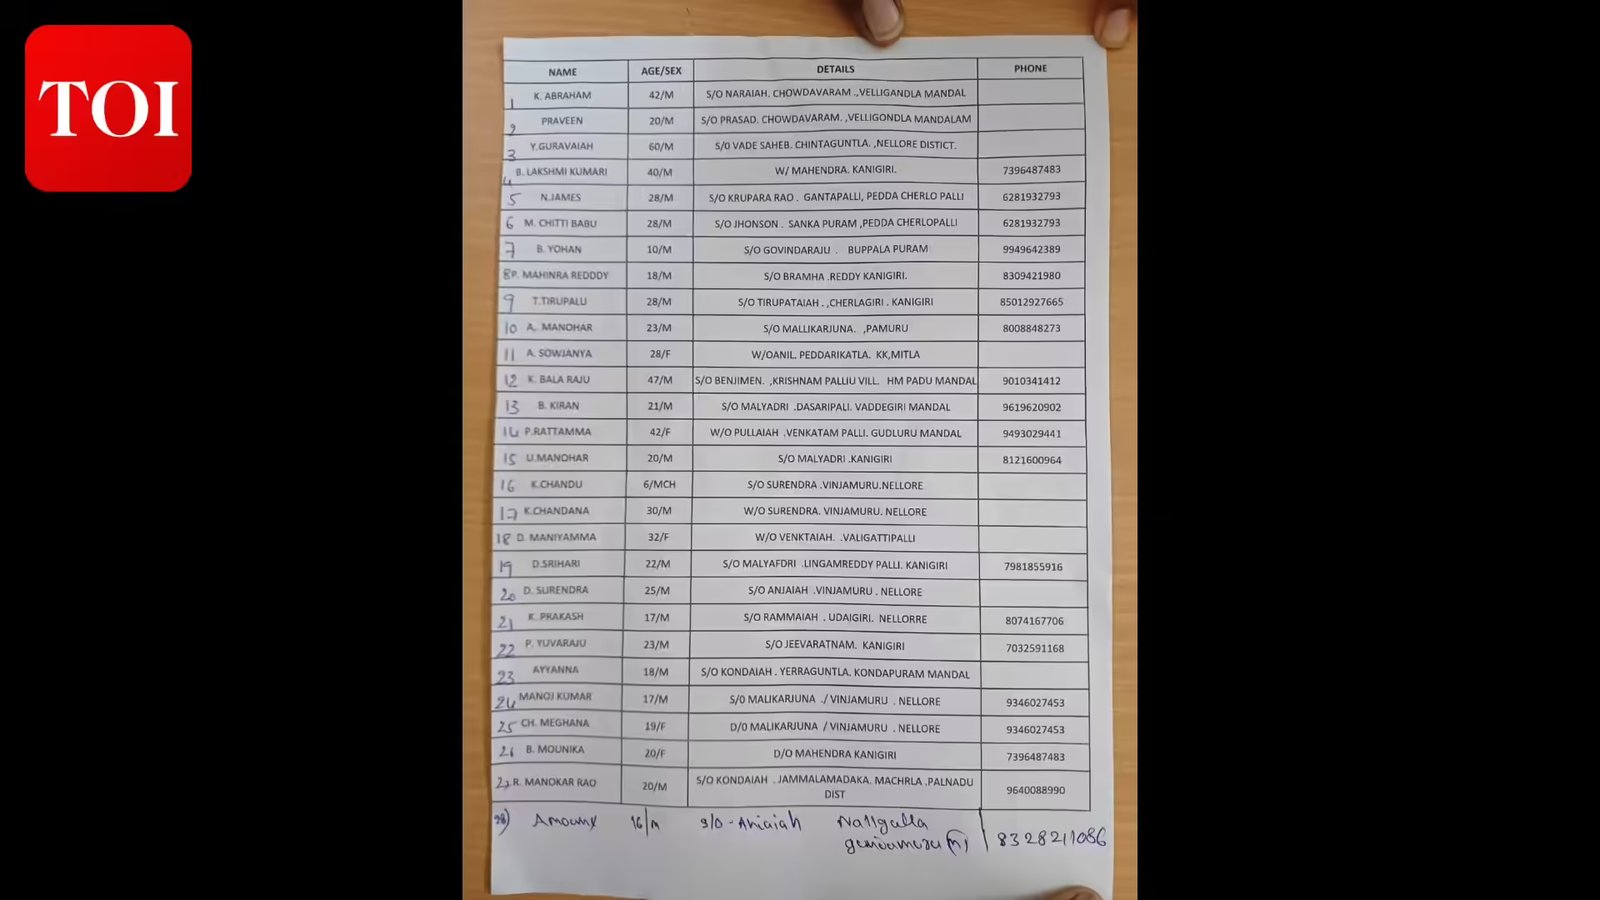 TOI
NAME AGE/SEX DETAILS PHONE
1 K. ABRAHAM 42/M S/O NARAIAH. CHOWDAVARAM .,VELLIGANDLA MANDAL
2 PRAVEEN 20/M S/O PRASAD. CHOWDAVARAM. ,VELLIGONDLA MANDALAM
3 Y.GURAVAIAH 60/M S/0 VADE SAHEB. CHINTAGUNTLA. ,NELLORE DISTICT.
4 B. LAKSHMI KUMARI 40/M W/ MAHENDRA. KANIGIRI. 7396487483
5 N.JAMES 28/M S/O KRUPARA RAO . GANTAPALLI, PEDDA CHERLO PALLI 6281932793
6 M. CHITTI BABU 28/M S/O JHONSON . SANKA PURAM ,PEDDA CHERLOPALLI 6281932793
7 B. YOHAN 10/M S/O GOVINDARAJU . BUPPALA PURAM 9949642389
8 P. MAHINRA REDDDY 18/M S/O BRAMHA .REDDY KANIGIRI. 8309421980
9 T.TIRUPALU 28/M S/O TIRUPATAIAH . ,CHERLAGIRI . KANIGIRI 85012927665
10 A. MANOHAR 23/M S/O MALLIKARJUNA. ,PAMURU 8008848273
11 A. SOWJANYA 28/F W/OANIL. PEDDARIKATLA. KK,MITLA
12 K. BALA RAJU 47/M S/O BENJIMEN. ,KRISHNAM PALLIU VILL. HM PADU MANDAL 9010341412
13 B. KIRAN 21/M S/O MALYADRI .DASARIPALI. VADDEGIRI MANDAL 9619620902
14 P.RATTAMMA 42/F W/O PULLAIAH .VENKATAM PALLI. GUDLURU MANDAL 9493029441
15 U.MANOHAR 20/M S/O MALYADRI .KANIGIRI 8121600964
16 K.CHANDU 6/MCH S/O SURENDRA .VINJAMURU.NELLORE
17 K.CHANDANA 30/M W/O SURENDRA. VINJAMURU. NELLORE
18 D. MANIYAMMA 32/F W/O VENKTAIAH. .VALIGATTIPALLI
19 D.SRIHARI 22/M S/O MALYAFDRI .LINGAMREDDY PALLI. KANIGIRI 7981855916
20 D. SURENDRA 25/M S/O ANJAIAH .VINJAMURU . NELLORE
21 K. PRAKASH 17/M S/O RAMMAIAH . UDAIGIRI. NELLORRE 8074167706
22 P. YUVARAJU 23/M S/O JEEVARATNAM. KANIGIRI 7032591168
23 AYYANNA 18/M S/O KONDAIAH . YERRAGUNTLA. KONDAPURAM MANDAL
24 MANOJ KUMAR 17/M S/0 MALIKARJUNA ./ VINJAMURU . NELLORE 9346027453
25 CH. MEGHANA 19/F D/0 MALIKARJUNA / VINJAMURU . NELLORE 9346027453
26 B. MOUNIKA 20/F D/O MAHENDRA KANIGIRI 7396487483
27 R. MANOKAR RAO 20/M S/O KONDAIAH . JAMMALAMADAKA. MACHRLA .PALNADU DIST 9640088990
28) 16/M S/O - Anjaiah Nallgalla
(m) 8328211086